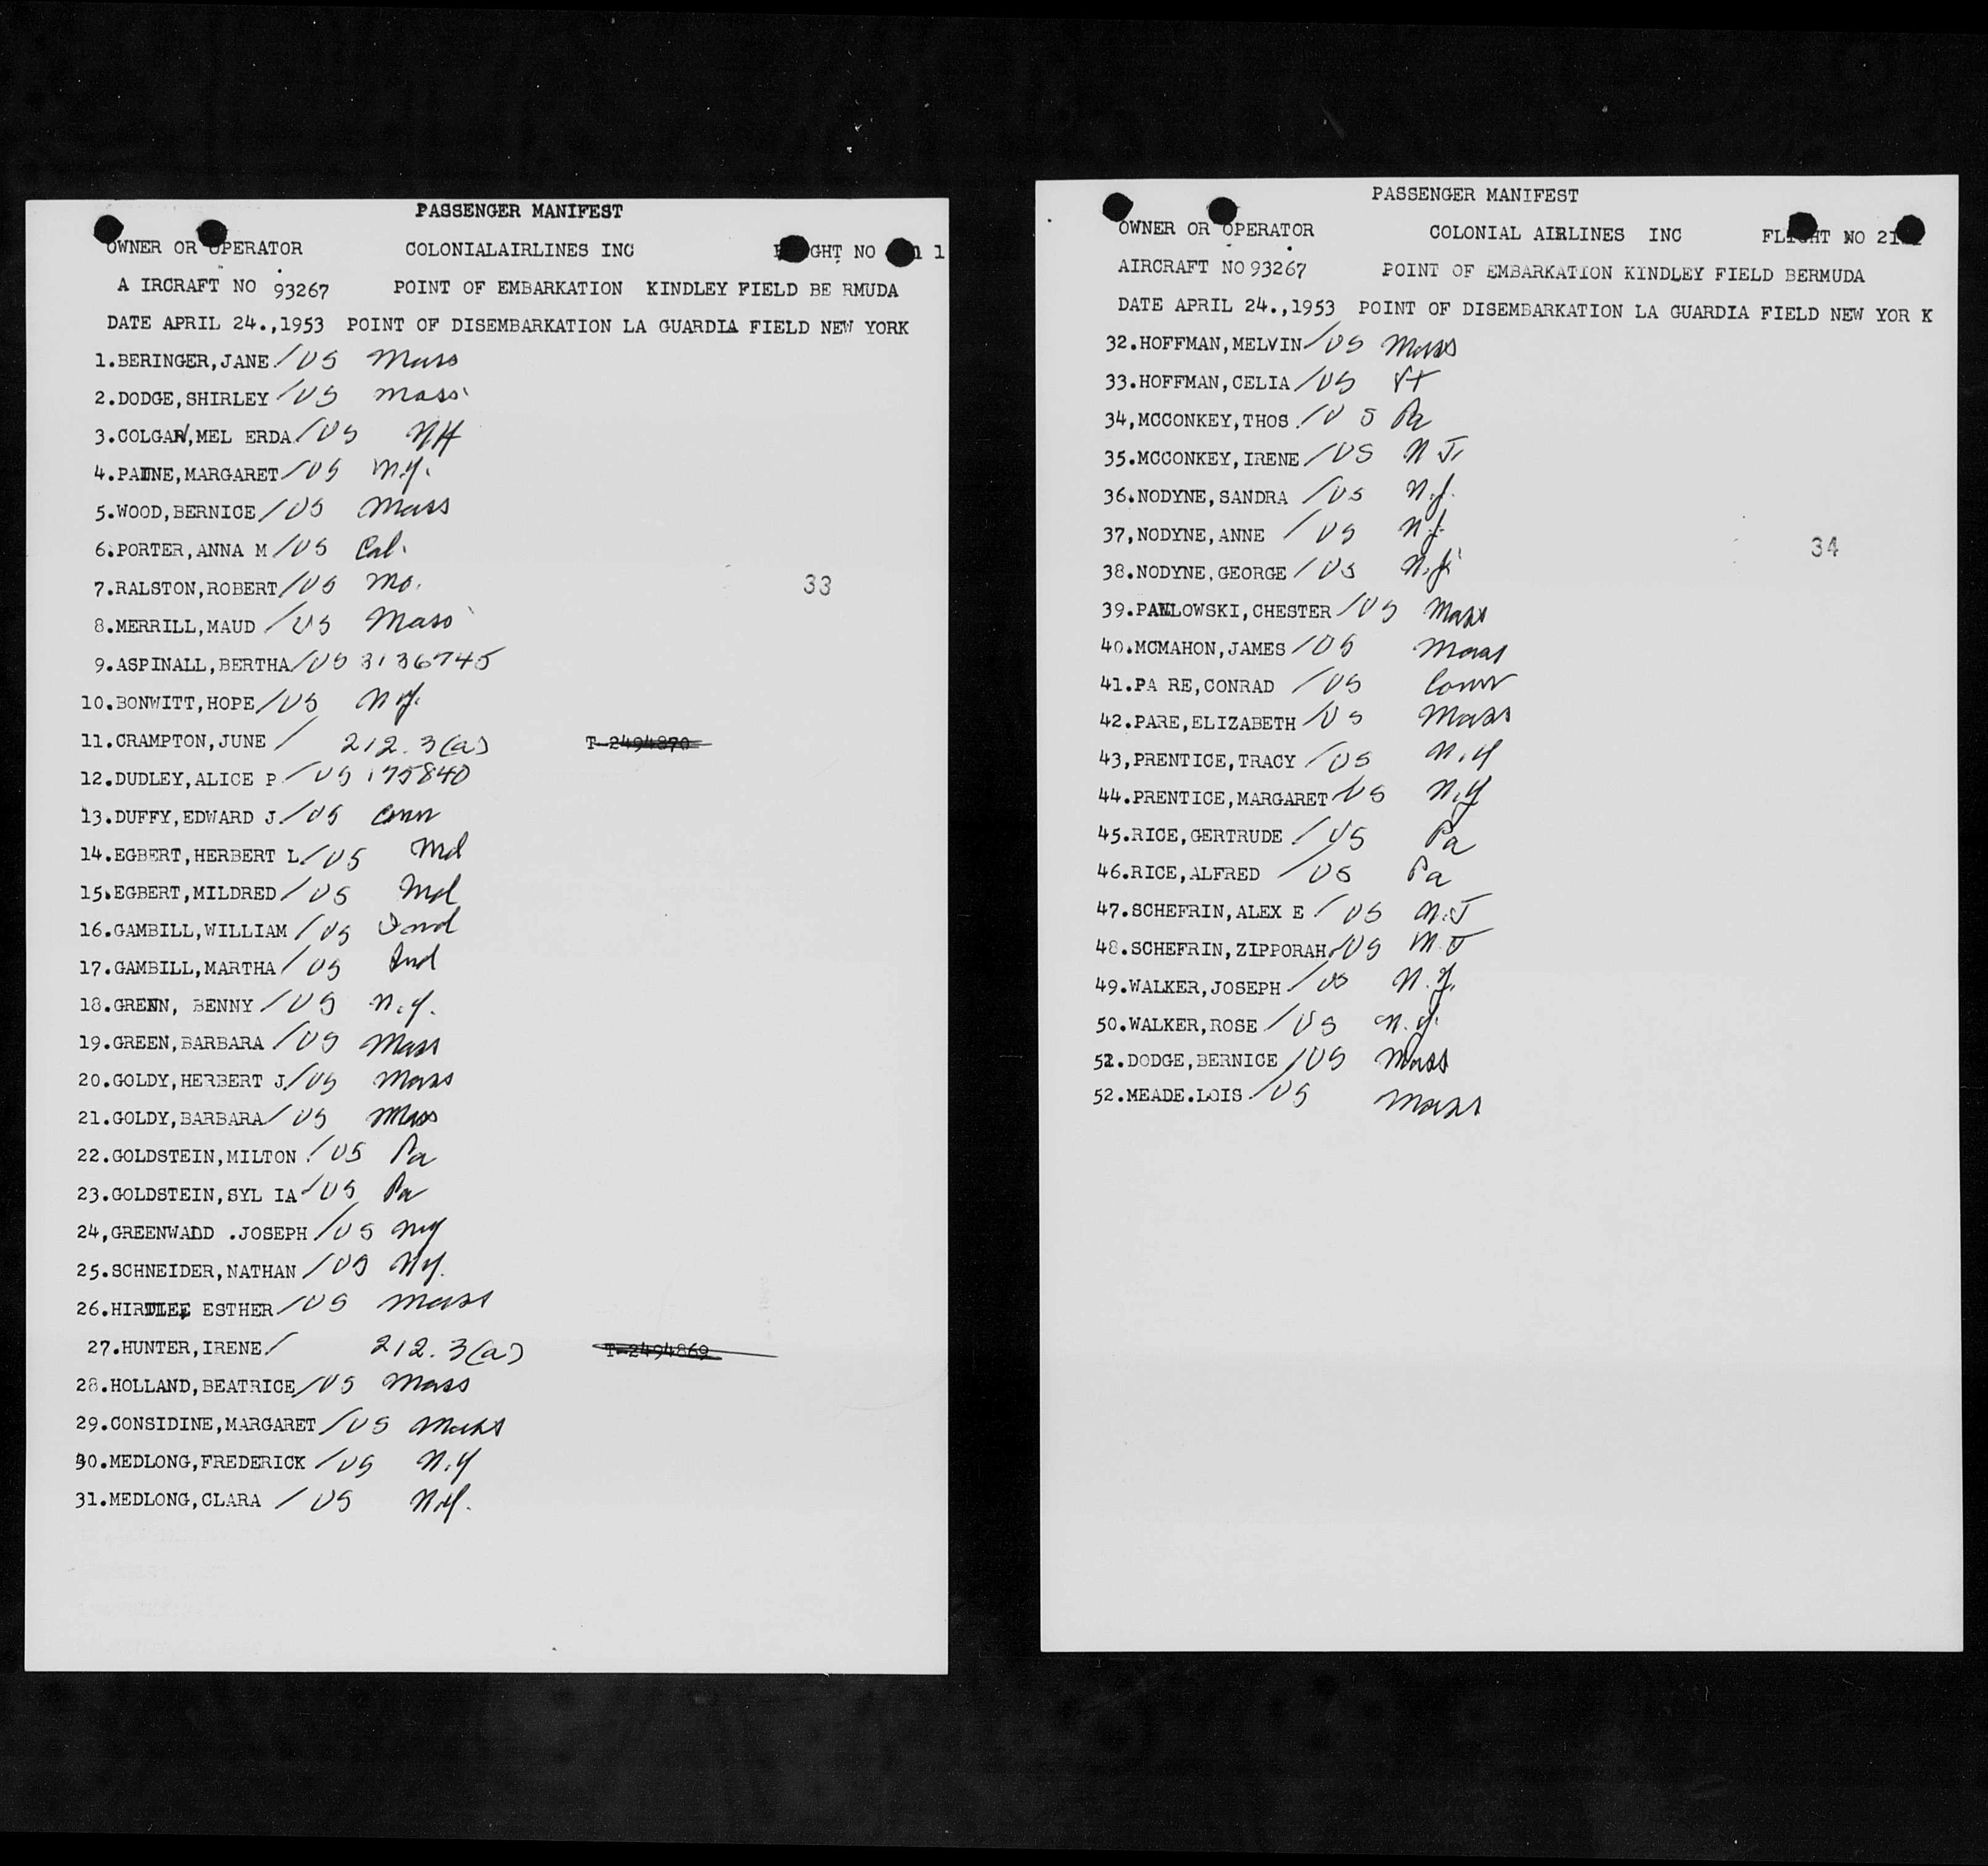 PASSENGER MANIFEST
OWNER OR OPERATOR COLONIALAIRLINES INC GHT NO 1
A IRCRAFT NO 93267 POINT OF EMBARKATION KINDLEY FIELD BE RMUDA
DATE APRIL 24.,1953 POINT OF DISEMBARKATION LA GUARDIA FIELD NEW YORK
1.BERINGER,JANE / US Mass
2.DODGE,SHIRLEY / US Mass
3.COLGAN,MEL ERDA / US NH
4.PAINE,MARGARET / US N.Y.
5.WOOD,BERNICE / US Mass
6.PORTER,ANNA M / US Cal.
7.RALSTON,ROBERT / US Mo.
33
8.MERRILL,MAUD / US Mass
9.ASPINALL,BERTHA / US 3136745
10.BONWITT,HOPE / US N.Y.
11.CRAMPTON,JUNE / 212.3(a) T-2494870
12.DUDLEY,ALICE P / US 175840
13.DUFFY,EDWARD J. / US Conn
14.EGBERT,HERBERT L / US Md
15.EGBERT,MILDRED / US Md
16.GAMBILL,WILLIAM / US Ind
17.GAMBILL,MARTHA / US Ind
18.GREEN, BENNY / US N.Y.
19.GREEN,BARBARA / US Mass
20.GOLDY,HERBERT J / US Mass
21.GOLDY,BARBARA / US Mass
22.GOLDSTEIN,MILTON / US Pa
23.GOLDSTEIN,SYL IA / US Pa
24,GREENWALD .JOSEPH / US NY
25.SCHNEIDER,NATHAN / US NY.
26. ESTHER / US Mass
27.HUNTER,IRENE / 212.3(a) T-2494869
28.HOLLAND,BEATRICE / US Mass
29.CONSIDINE,MARGARET / US Mass
30.MEDLONG,FREDERICK / US N.Y
31.MEDLONG,CLARA / US N.Y.
PASSENGER MANIFEST
OWNER OR OPERATOR COLONIAL AIRLINES INC FLIGHT NO
AIRCRAFT NO 93267 POINT OF EMBARKATION KINDLEY FIELD BERMUDA
DATE APRIL 24.,1953 POINT OF DISEMBARKATION LA GUARDIA FIELD NEW YOR K
32.HOFFMAN,MELVIN / US Mass
33.HOFFMAN,CELIA / US Vt
34,MCCONKEY,THOS. / U S Pa
35.MCCONKEY,IRENE / US N J.
36.NODYNE,SANDRA / US N.J.
37,NODYNE,ANNE / US N.J.
34
38.NODYNE,GEORGE / US N.J.
39.PAWLOWSKI,CHESTER / US Mass
40.MCMAHON,JAMES / US Mass
41.PA RE,CONRAD / US Conn
42.PARE,ELIZABETH / US Mass
43,PRENTICE,TRACY / US N.Y
44.PRENTICE,MARGARET / US N.Y
45.RICE,GERTRUDE / US Pa
46.RICE,ALFRED / US Pa
47.SCHEFRIN,ALEX E / US N.J
48.SCHEFRIN,ZIPPORAH / US N.J
49.WALKER,JOSEPH / US N.Y.
50.WALKER,ROSE / US N.Y.
51.DODGE,BERNICE / US Mass
52.MEADE.LOIS / US Mass